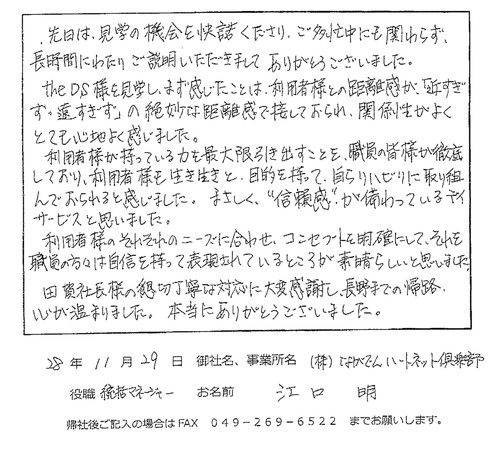 先日は、見学の機会を快諾くださり、ご多忙中にも関わらず、
長時間にわたりご説明いただきましてありがとうございました。
the DS様を見学しまず感じたことは、利用者様との距離感が、「近すぎ
ず・遠すぎず」の絶妙な距離感で接しておられ、関係性がよく
とても心地よく感じました。
利用者様が持っている力を最大限引き出すことを、職員の皆様が徹底
しており、利用者様も生き生きと、目的を持って、自らリハビリに取り組
んでおられると感じました。まさしく、"信頼感"が備わっているデイ
サービスと思いました。
利用者様のそれぞれのニーズに合わせ、コンセプトを明確にして、それを
職員の方々は自信を持って表現されているところが素晴らしいと思いました。
社長様の懇切丁寧な対応に大変感謝し、長野までの帰路、
心が温まりました。本当にありがとうございました。
28年11月29日 御社名、事業所名 (株)ながでんハートネット倶楽部
役職 統括マネージャー お名前 江口 明
帰社後ご記入の場合はFAX 049-269-6522 までお願いします。